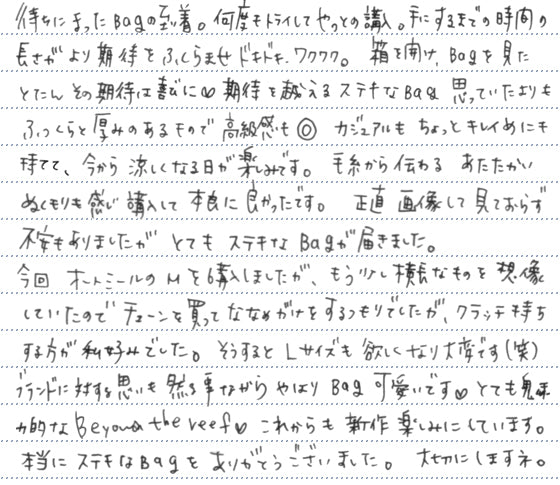 待ちにまったBagの到着。何度もトライしてやっとの購入。手にするまでの時間の
長さがより期待をふくらませドキドキ、ワクワク。箱を開け、Bagを見た
とたんその期待は喜びに♡期待を越えるステキなBag 思っていたよりも
ふっくらと厚みのあるもので高級感も◎ カジュアルもちょっとキレイめにも
持てて、今から涼しくなる日が楽しみです。毛糸から伝わる あたたかい
ぬくもりも感じ購入して本当に良かったです。正直 画像して見ておらず
不安もありましたが とてもステキなBagが届きました。
今回 オートミールのMを購入しましたが、もう少し横長なものを想像
していたので チェーンを買ってななめがけをするつもりでしたが、クラッチ持ち
する方が私好みでした。そうするとLサイズも欲しくなり大変です(笑)
ブランドに対する思いも然る事ながらやはりBag可愛いです♡とても魅
力的なBeyond the reef♡これからも新作楽しみにしています。
本当にステキなBagをありがとうございました。大切にしますネ。